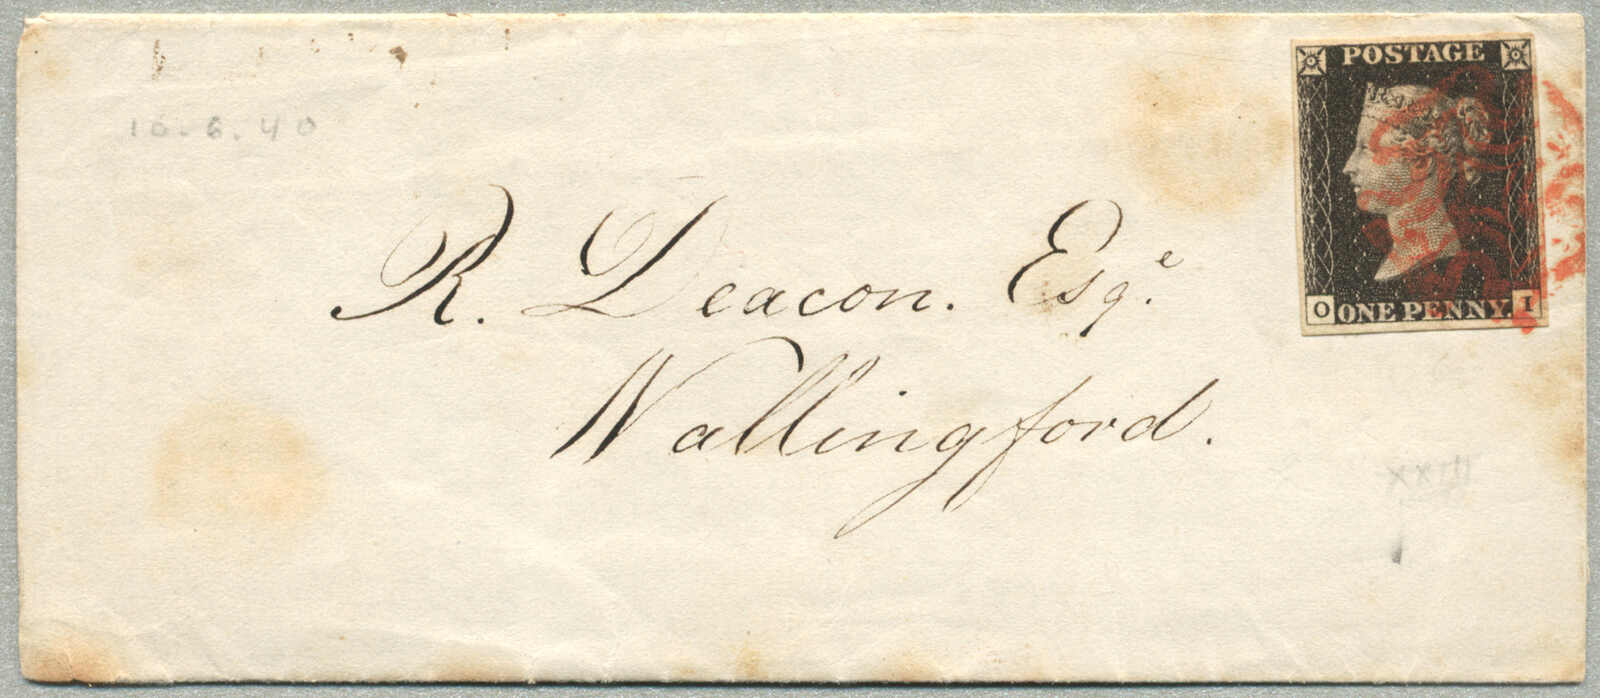 16.6.40
POSTAGE
O ONE PENNY. I
R. Deacon. Esqe.
Wallingford.
XXIII